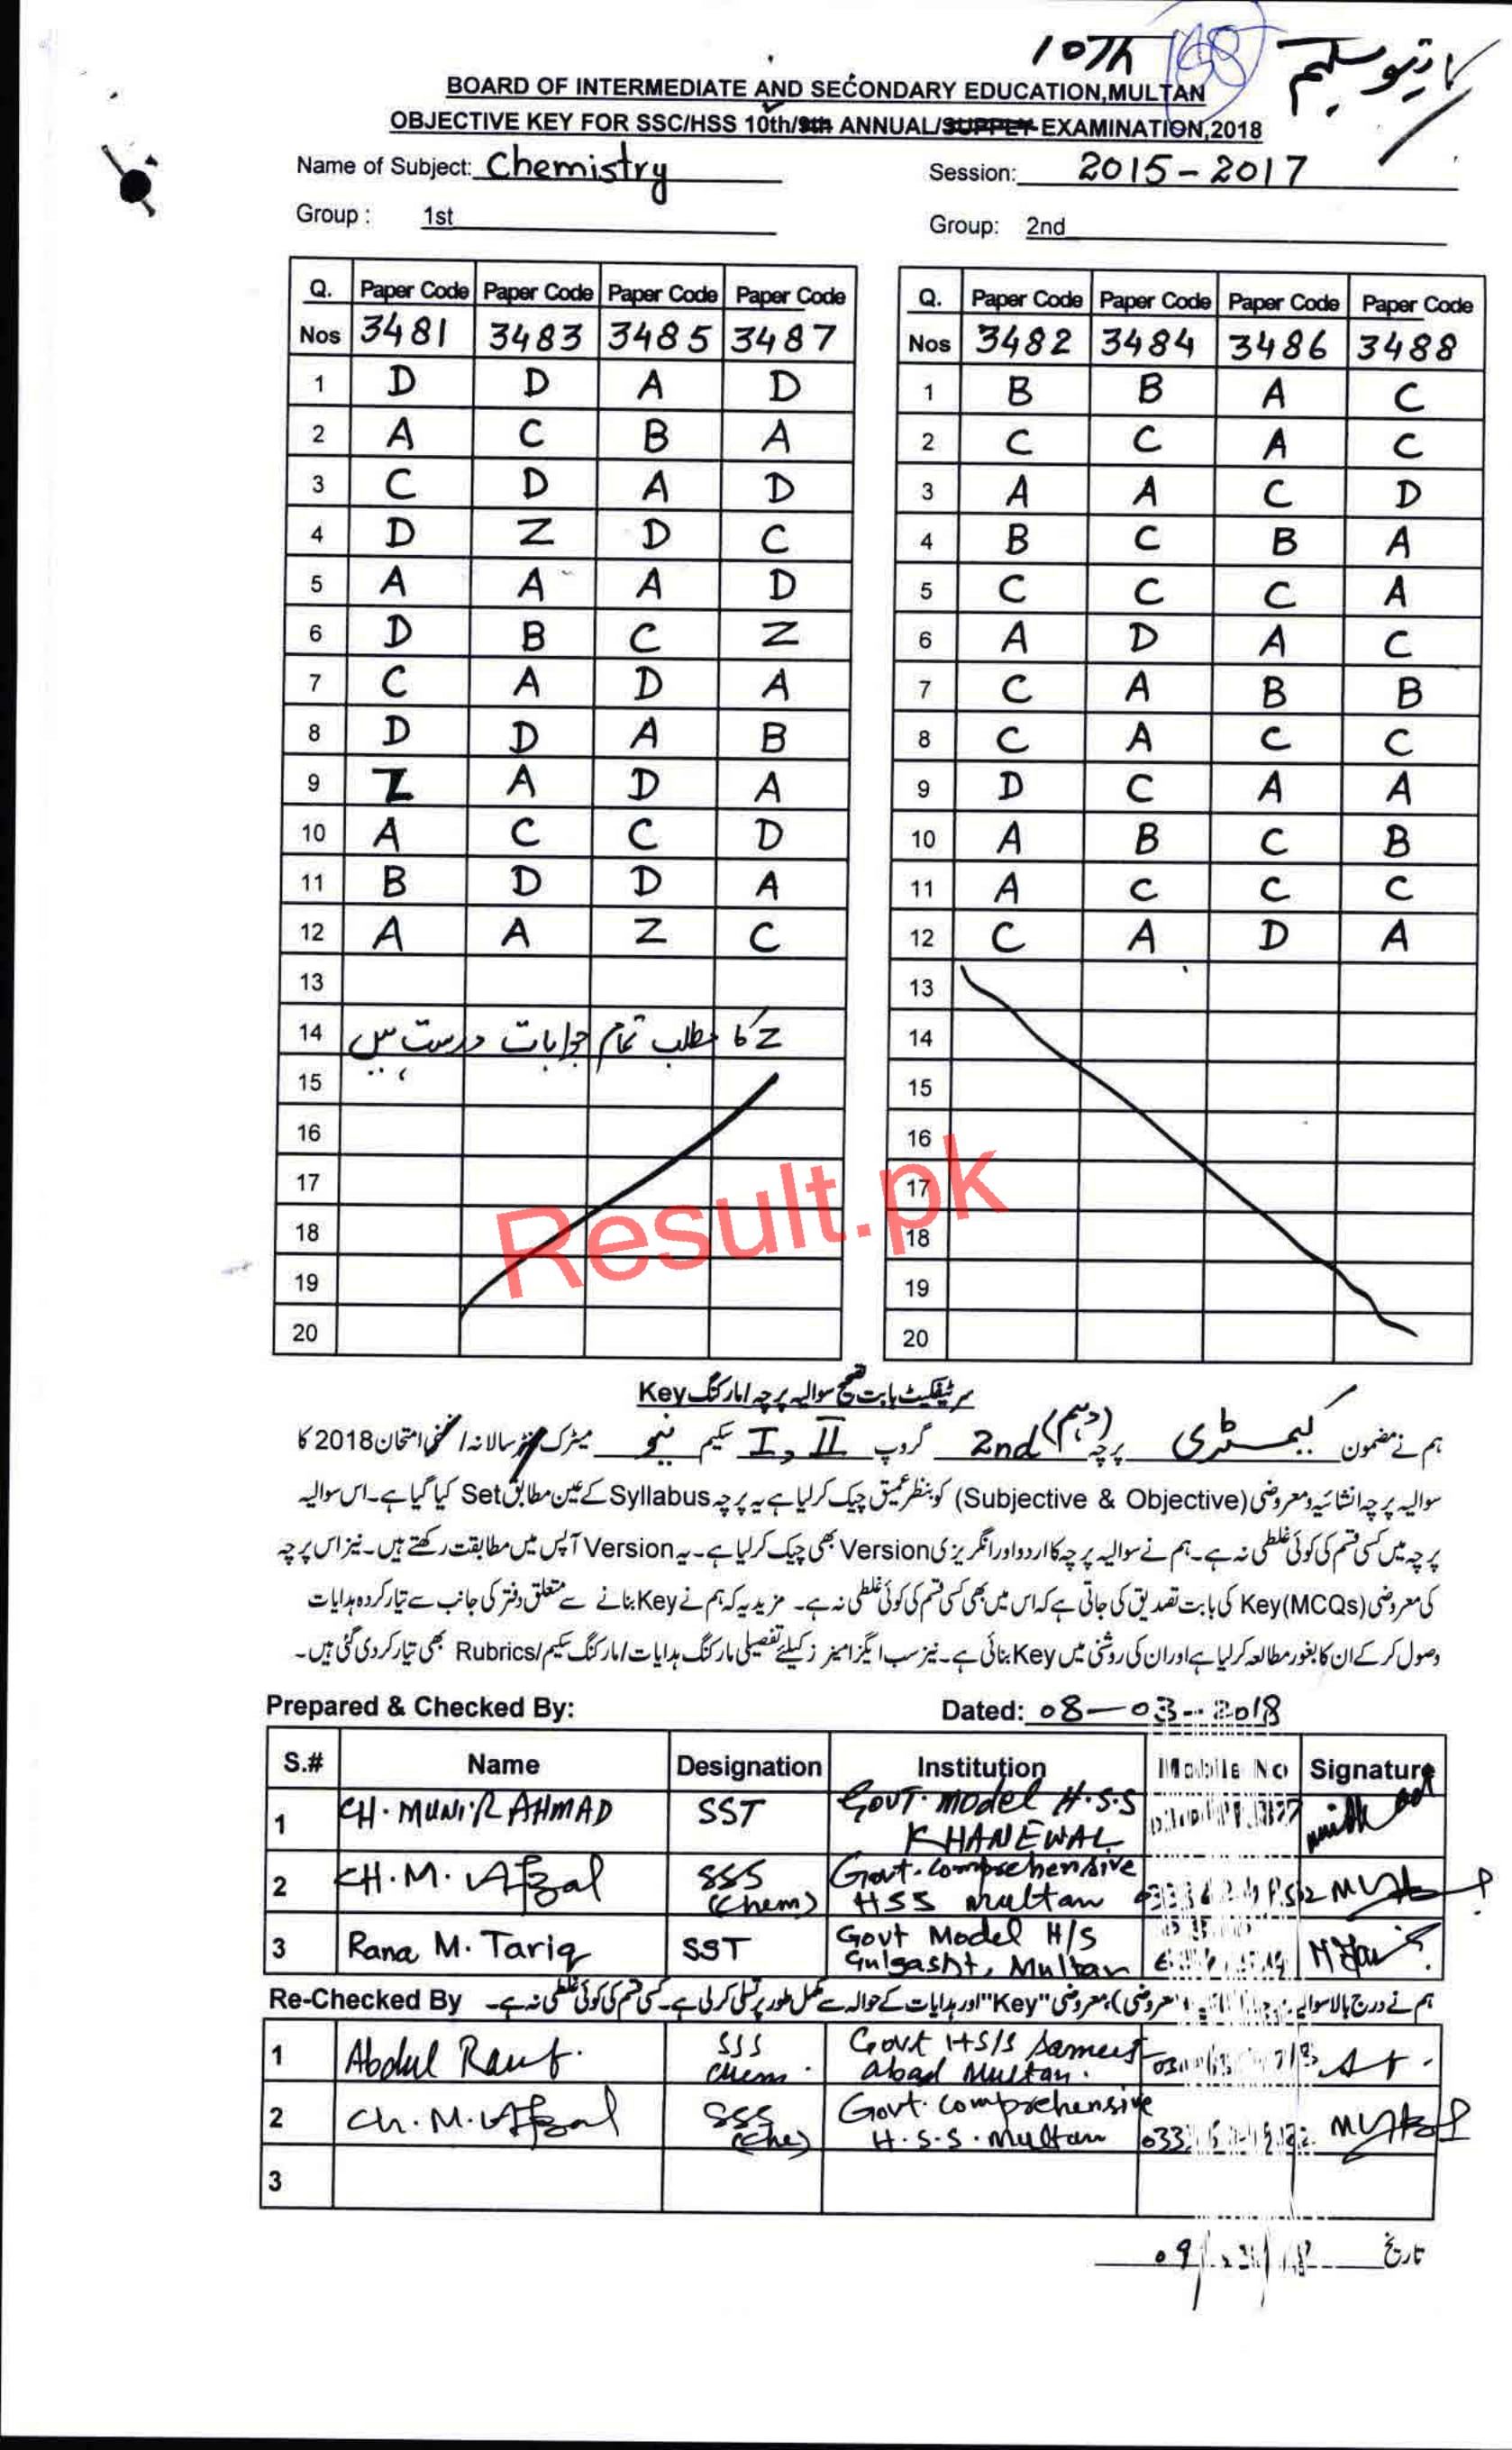 10Th 158
BOARD OF INTERMEDIATE AND SECONDARY EDUCATION,MULTAN
OBJECTIVE KEY FOR SSC/HSS 10th/9th ANNUAL/SUPPLY EXAMINATION,2018
Name of Subject: Chemistry Session: 2015-2017
Group : 1st Group: 2nd
Q. Paper Code Paper Code Paper Code Paper Code
Nos 3481 3483 3485 3487
1 D D A D
2 A C B A
3 C D A D
4 D Z D C
5 A A A D
6 D B C Z
7 C A D A
8 D D A B
9 Z A D A
10 A C C D
11 B D D A
12 A A Z C
13
14 Z کا مطلب تمام جوابات درست ہیں
15
16
17
18
19
20
Q. Paper Code Paper Code Paper Code Paper Code
Nos 3482 3484 3486 3488
1 B B A C
2 C C A C
3 A A C D
4 B C B A
5 C C C A
6 A D A C
7 C A B B
8 C A C C
9 D C A A
10 A B C B
11 A C C C
12 C A D A
13
14
15
16
17
18
19
20
Result.pk
سرٹیفکیٹ بابت تصحیح سوالیہ پرچہ/مارکنگ Key
ہم نے مضمون کیمسٹری پرچہ 2nd (دہم) گروپ I, II سکیم نیو میٹرک سالانہ/ضمنی امتحان 2018 کا
سوالیہ پرچہ انشائیہ و معروضی (Subjective & Objective) کو بنظر عمیق چیک کر لیا ہے یہ پرچہ Syllabus کے عین مطابق Set کیا گیا ہے۔ اس سوالیہ
پرچہ میں کسی قسم کی کوئی غلطی نہ ہے۔ ہم نے سوالیہ پرچہ کا اردو اور انگریزی Version بھی چیک کر لیا ہے۔ یہ Version آپس میں مطابقت رکھتے ہیں۔ نیز اس پرچہ
کی معروضی Key(MCQs) کی بابت تصدیق کی جاتی ہے کہ اس میں بھی کسی قسم کی کوئی غلطی نہ ہے۔ مزید یہ کہ ہم نے Key بنانے سے متعلق دفتر کی جانب سے تیار کردہ ہدایات
وصول کر کے ان کا بغور مطالعہ کر لیا ہے اور ان کی روشنی میں Key بنائی ہے۔ نیز سب ایگزامینرز کیلئے تفصیلی مارکنگ ہدایات/مارکنگ سکیم/Rubrics بھی تیار کر دی گئی ہیں۔
Prepared & Checked By: Dated: 08-03-2018
S.# Name Designation Institution Mobile No Signature
1 CH. MUNIR AHMAD SST GOVT. model H.S.S KHANEWAL
2 CH. M. Afzal SSS (Chem) Govt. Comprehensive HSS Multan
3 Rana M. Tariq SST Govt Model H/S Gulgasht, Multan
Re-Checked By ہم نے درج بالا سوالیہ معروضی "Key" اور ہدایات کے حوالہ سے مکمل طور پر تسلی کر لی ہے۔ کسی قسم کی کوئی غلطی نہ ہے۔
1 Abdul Rauf. SSS Chem. Govt HS/S abad Multan.
2 Ch. M. Afzal SSS (Che) Govt. Comprehensive H.S.S. Multan
3
تاریخ